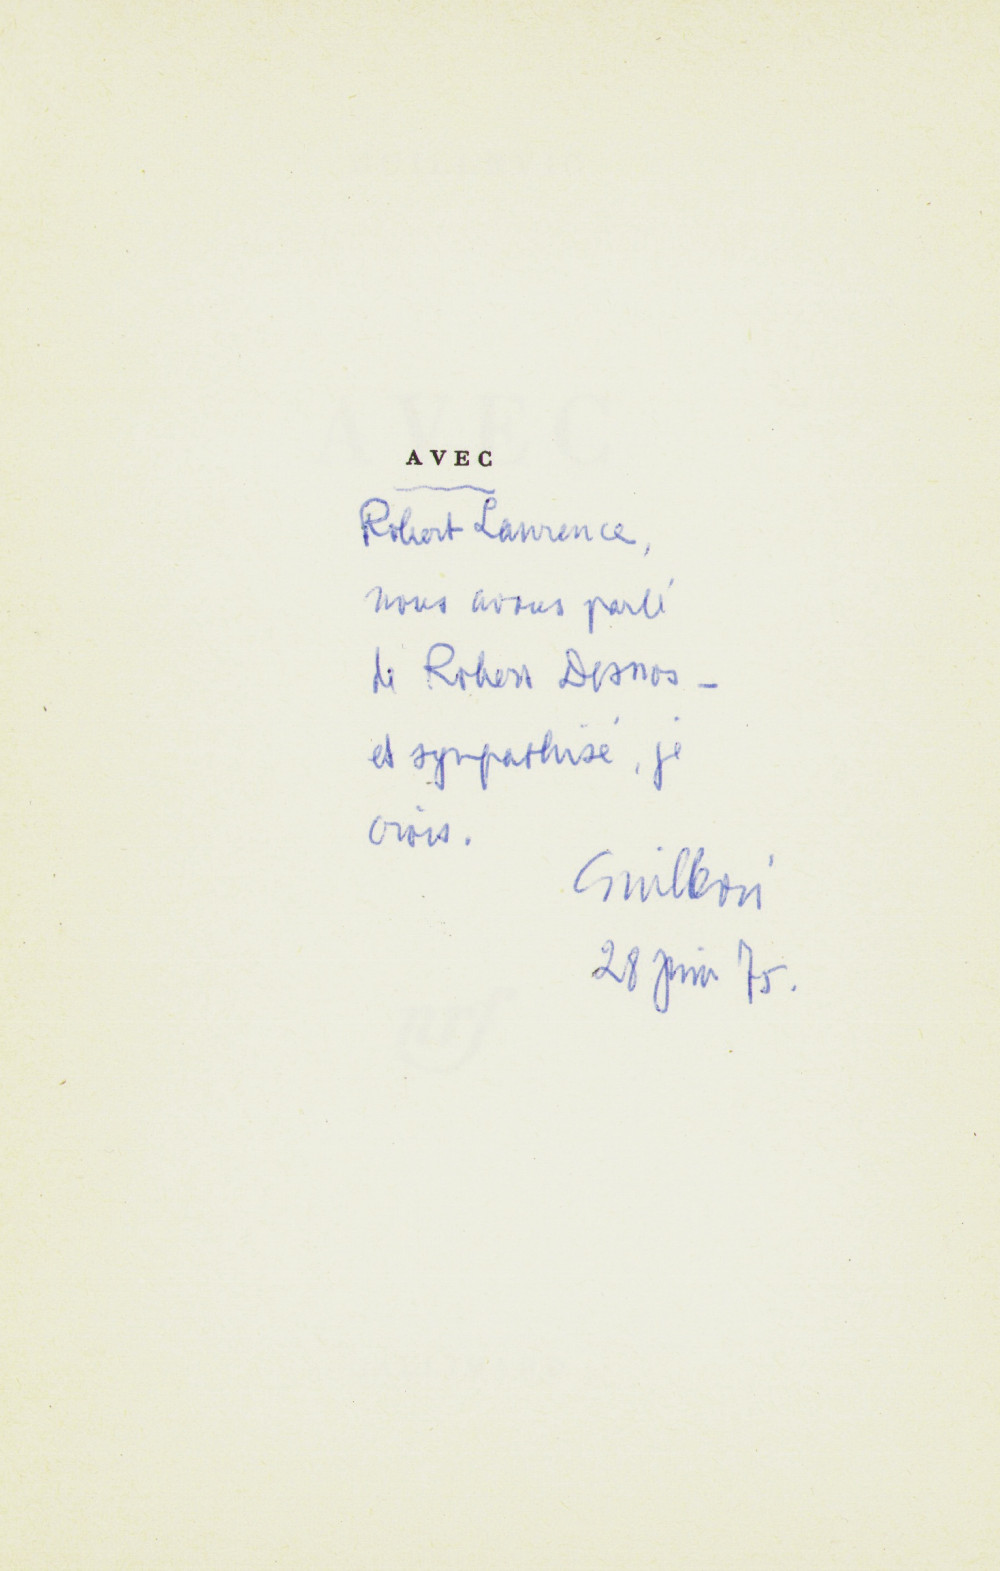 AVEC
Robert Laurence,
nous avons parlé
de Robert Desnos –
et sympathisé, je
crois.
Guillevic
28 juin 75.